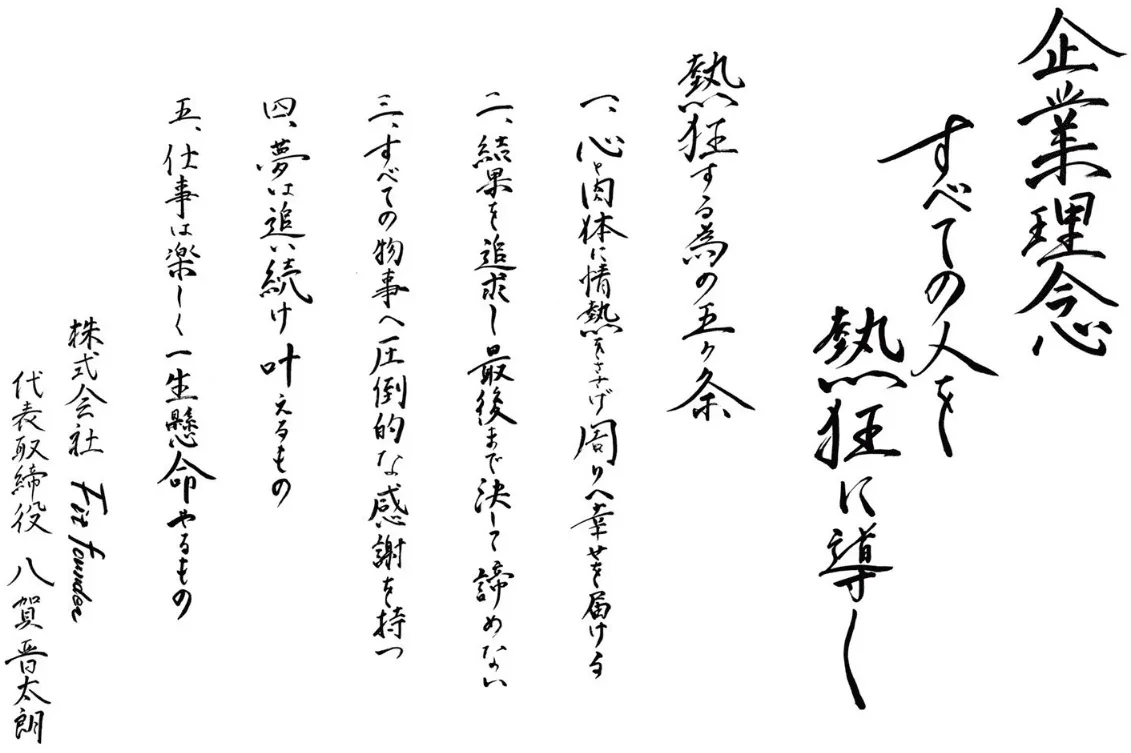 企業理念
すべての人を
熱狂に導く
熱狂する為の五ヶ条
一、心と肉体に情熱をささげ周りへ幸せを届ける
二、結果を追求し最後まで決して諦めない
三、すべての物事へ圧倒的な感謝を持つ
四、夢は追い続け叶えるもの
五、仕事は楽しく一生懸命やるもの
株式会社 Fit founder
代表取締役 八賀晋太朗